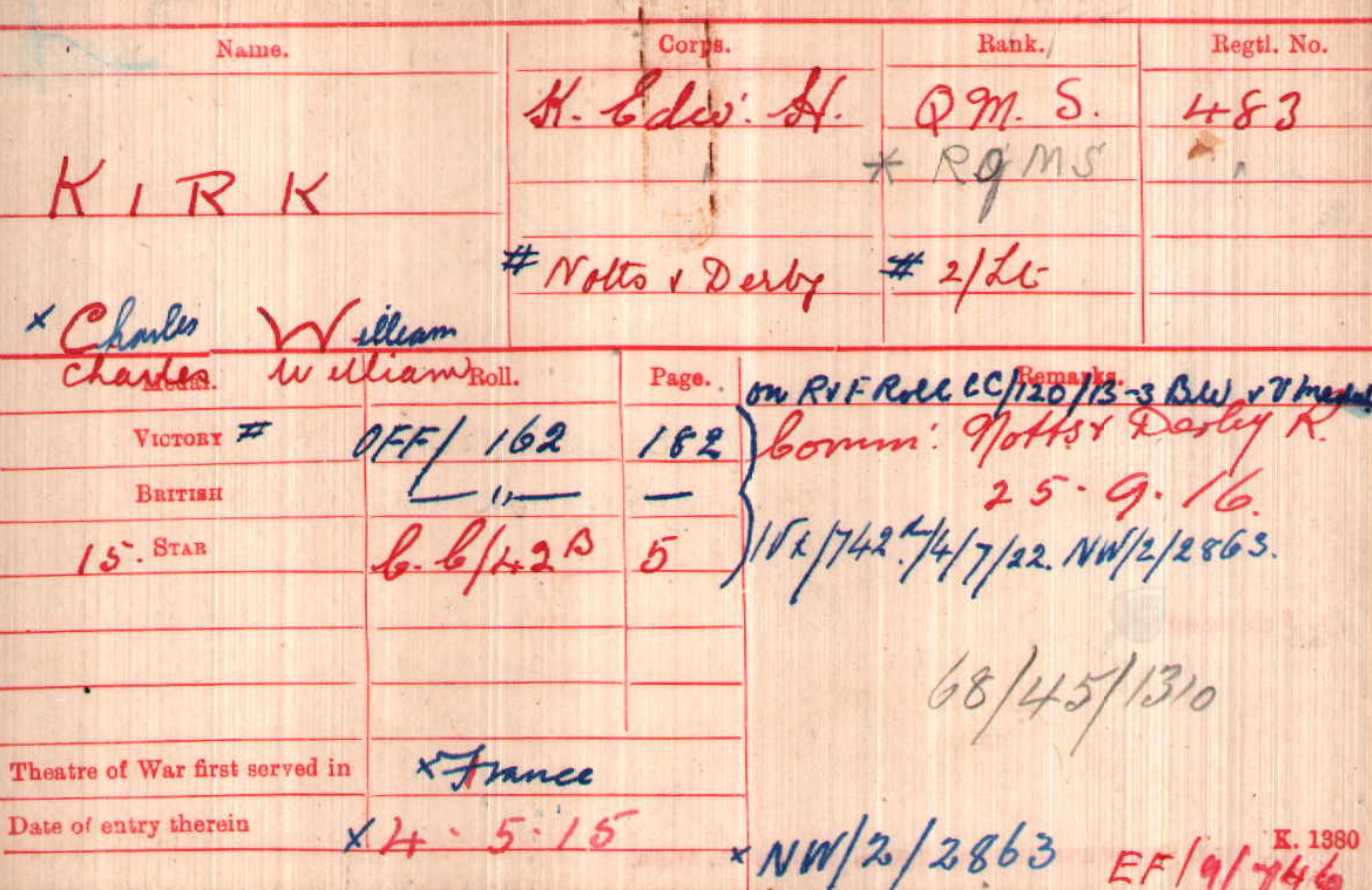 Name. Corps. Rank. Regtl. No.
K. Edw: H. Q M. S. 483
* RQMS
KIRK
# Notts & Derby # 2/Lt
x Charles William
Charles William
Medal. Roll. Page. Remarks.
on R & F Roll CC/120/13-3 BW & V medal
VICTORY # OFF/162 182 Comm: Notts & Derby R.
BRITISH — " — — 25.9.16.
15. STAR C.C/42 B 5 /4/7/22. NW/2/2863.
68/45/1310
Theatre of War first served in x France
Date of entry therein x 4.5.15
x NW/2/2863 EF/9/746
K. 1380